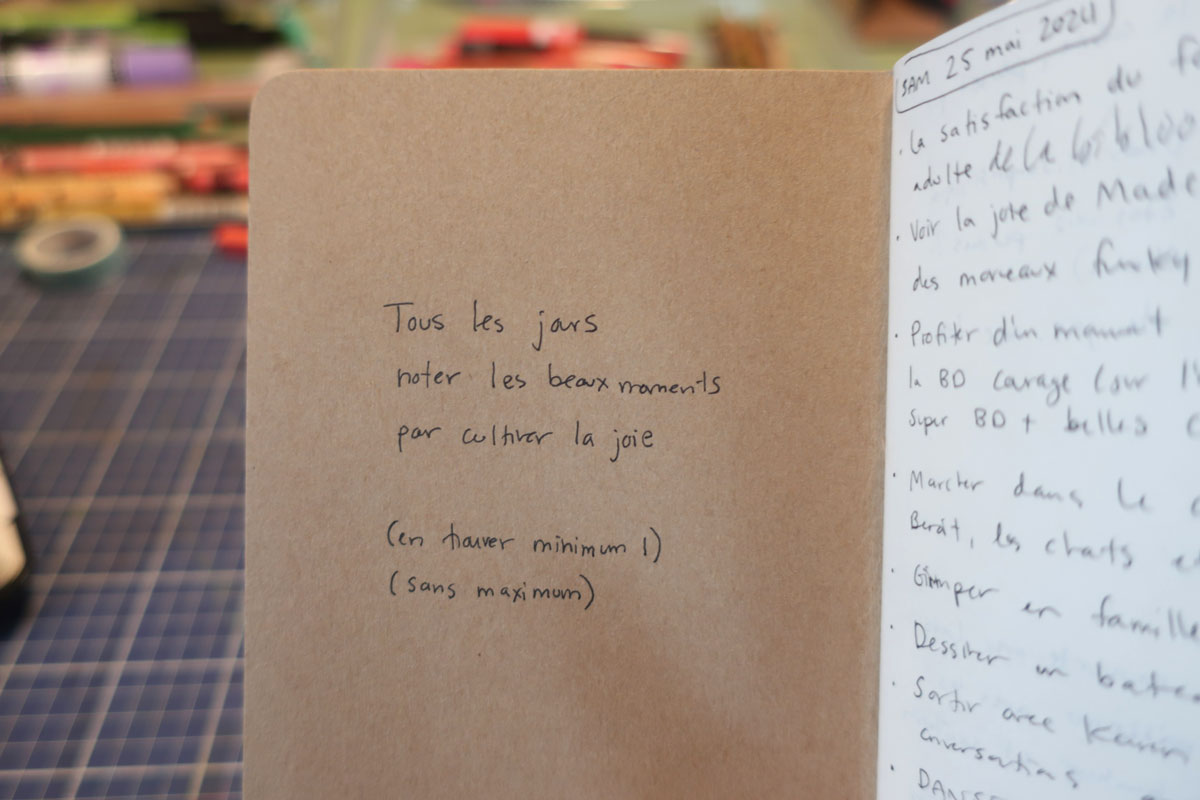 Tous les jours
noter les beaux moments
pour cultiver la joie
(en trouver minimum 1)
(sans maximum)
SAM 25 mai 2024
. la satisfaction du
adulte de la
. Voir la joie de Made
des morceaux funky
. Profiter d'un moment
la BD courage (sur
super BD + belles
. Marcher dans le
les chants
. Grimper en famille
. Dessiner un
. Sortir avec
conversations
.